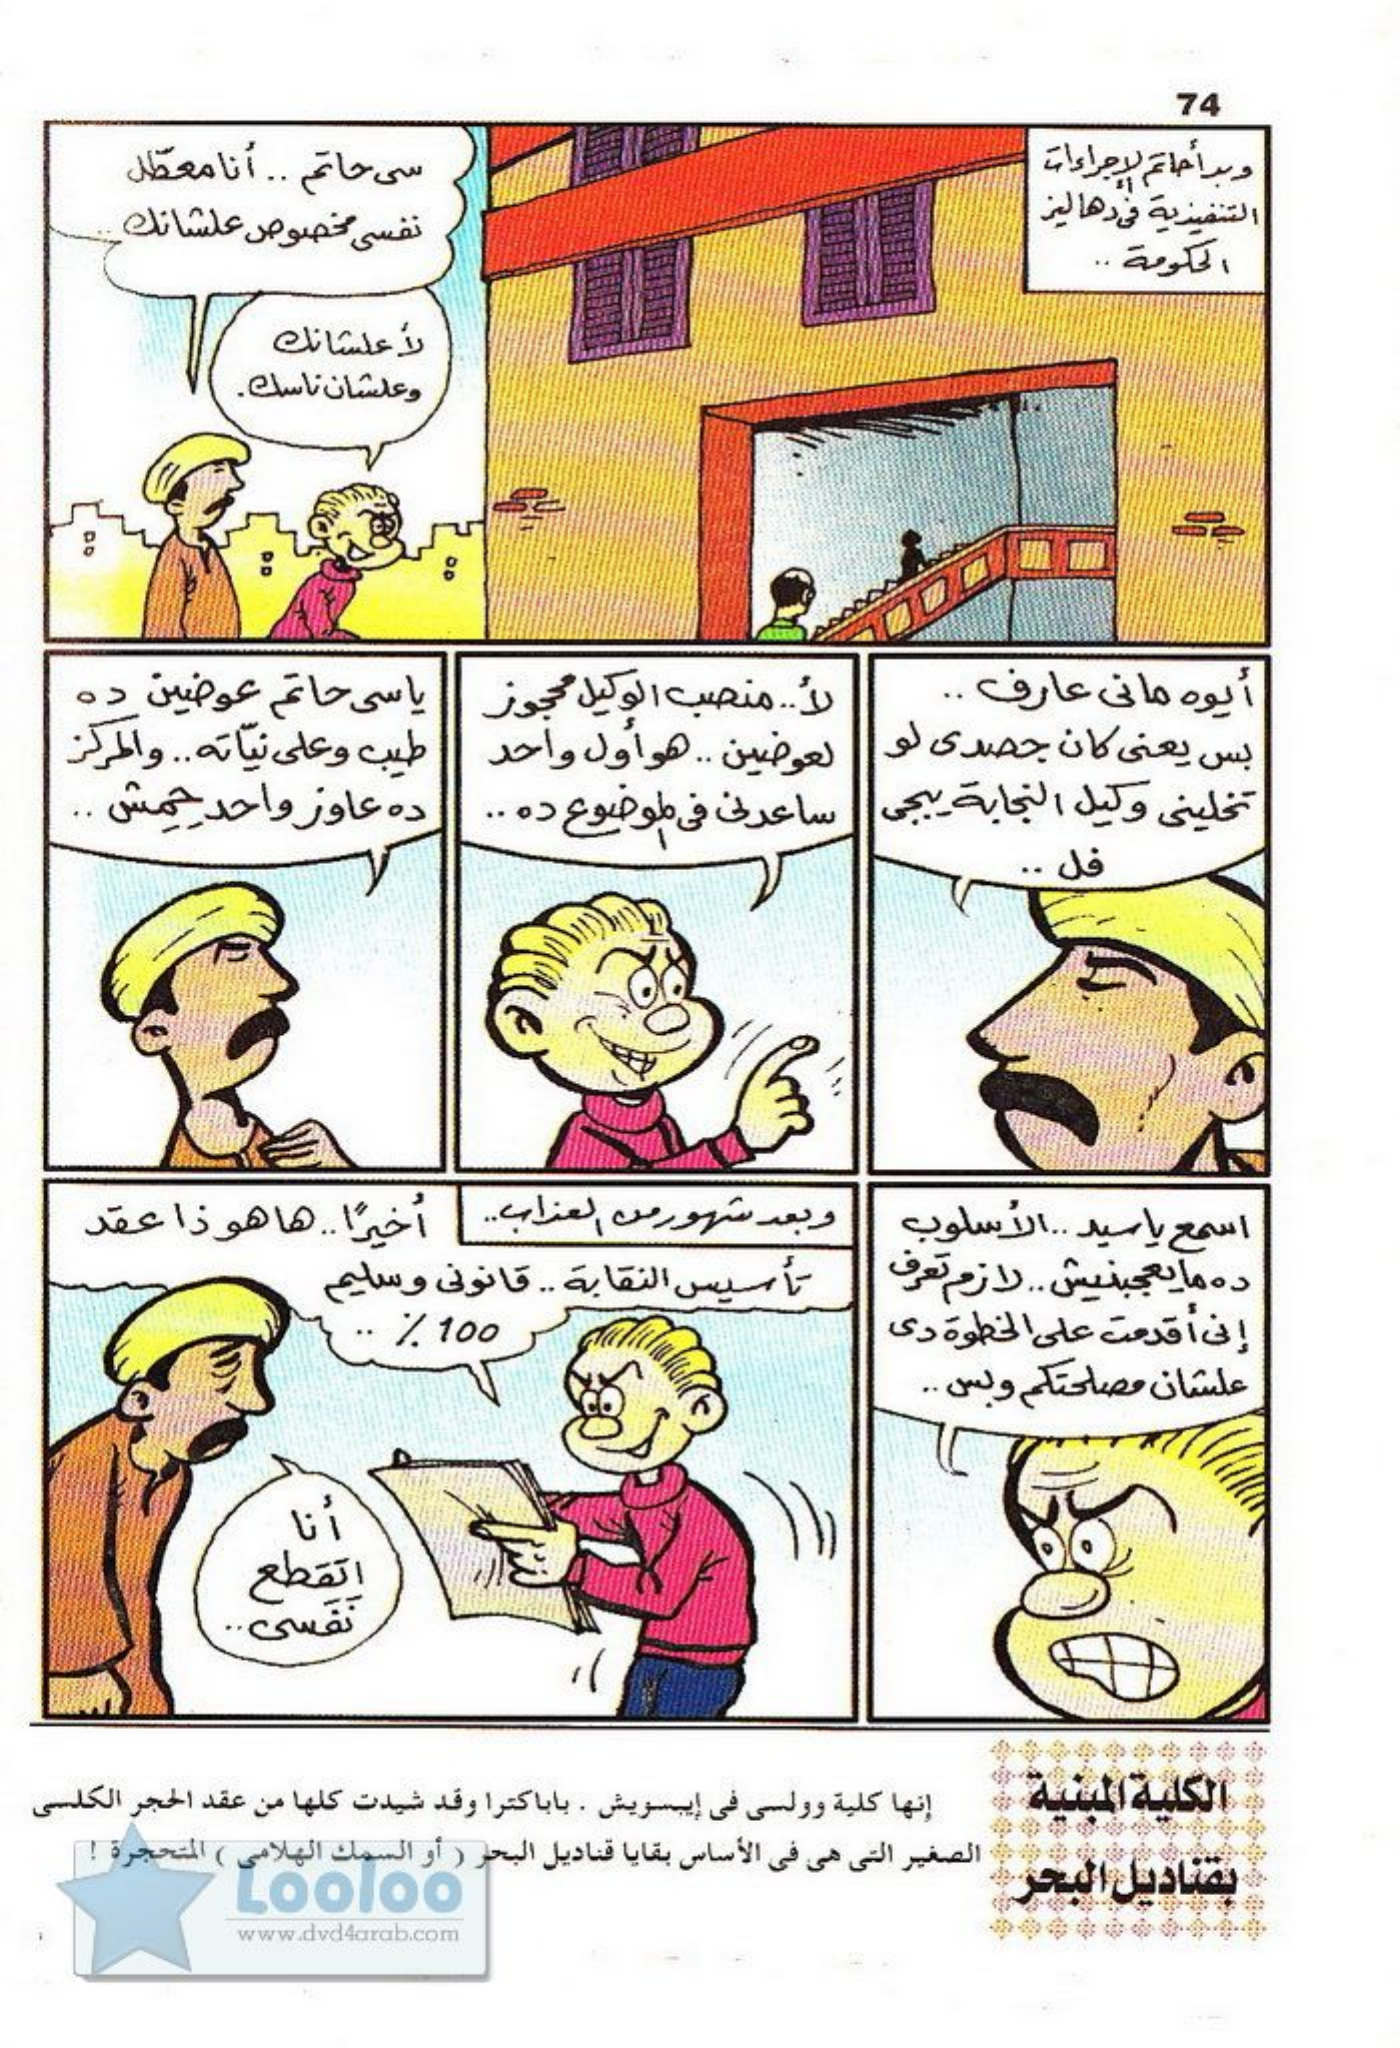 74
وبدأ حاتم الإجراءات
التنفيذية فى دهاليز
الحكومة ..
سى حاتم .. أنا معطّل
نفسى مخصوص علشانك ..
لأ علشانك
وعلشان ناسك.
أيوه مانى عارف ..
بس يعنى كان جصدى لو
تخلينى وكيل النجابة يبجى
فل ..
لأ.. منصب الوكيل محجوز
لعوضين .. هو أول واحد
ساعدنى فى الموضوع ده ..
ياسى حاتم عوضين ده
طيب وعلى نيّاته .. والمركز
ده عاوز واحد حِمِش ..
اسمع ياسيد .. الأسلوب
ده مايعجبنيش .. لازم تعرف
إنى أقدمت على الخطوة دى
علشان مصلحتكم وبس ..
وبعد شهور من العذاب ..
أخيرًا .. ها هو ذا عقد
تأسيس النقابة .. قانونى وسليم
100 ٪ ..
أنا
اتقطع
نَفَسى ..
الكلية المبنية
بقناديل البحر
إنها كلية وولسى فى إيبسويش . باباكترا وقد شيدت كلها من عقد الحجر الكلسى
الصغير التى هى فى الأساس بقايا قناديل البحر ( أو السمك الهلامى ) المتحجرة !
Looloo
www.dvd4arab.com